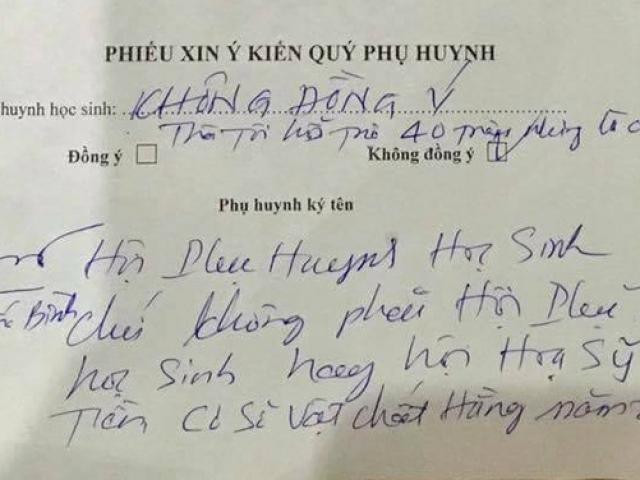 PHIẾU XIN Ý KIẾN QUÝ PHỤ HUYNH
huynh học sinh: KHÔNG ĐỒNG Ý
Tôi hỗ trợ 40
Đồng ý Không đồng ý
Phụ huynh ký tên
Hội Phụ Huynh Học Sinh
Bình chứ không phải Hội Phụ
học sinh hay hội Hoạ Sỹ
Tiền Cơ Sở Vật chất Hằng năm